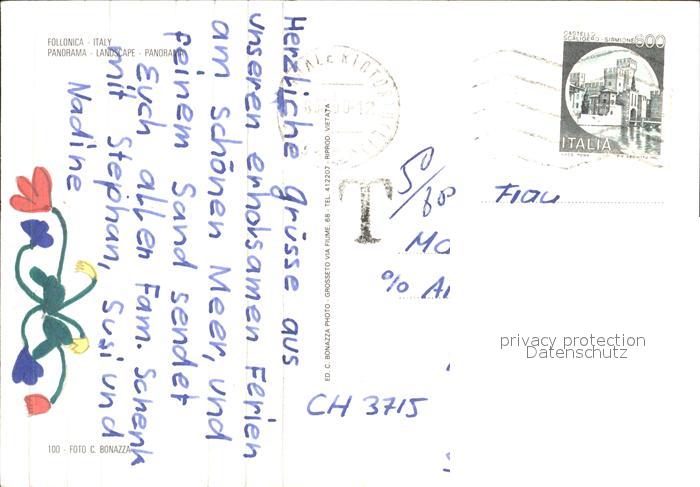 FOLLONICA - ITALY
PANORAMA - LANDSCAPE - PANORAMA
Herzliche grüsse aus
unseren erholsamen Ferien
am schönen Meer, und
feinem Sand sendet
Euch allen Fam. Schenk
mit Stephan, Susi und
Nadine
100 - FOTO C. BONAZZA
ED. C. BONAZZA PHOTO - GROSSETO VIA FIUME, 68 - TEL. 412207 - RIPROD. VIETATA
CASTELLO
SCALIGERO - SIRMIONE 600
ITALIA
T
50/60
Frau
Mo
% A
CH 3715
privacy protection
Datenschutz